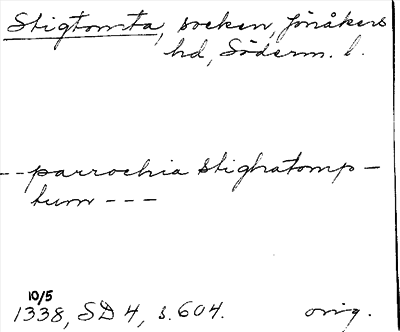 Stigtomta, socken, Jönåkers
hd, Söderm. l.
-- parrochia stighatomp-
tum ---
10/5
1338, SD 4, s. 604. orig.